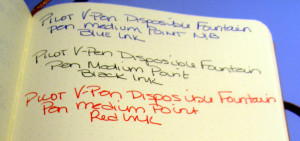 PILOT V-Pen Disposible Fountain
pen medium Point N/B
Blue Ink
PILOT V-Pen Disposible Fountain
Pen Medium Point
Black Ink
PILOT V-Pen Disposible Fountain
Pen medium Point
Red Ink